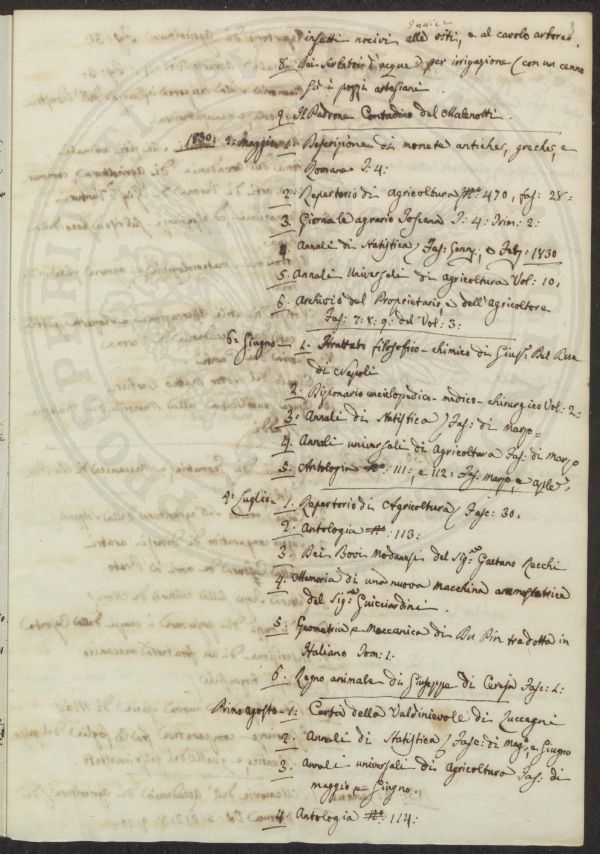 Indice
insetti nocivi alle viti, e al cavolo arboreo
8. Dei serbatoi d'acqua per irrigazione (con un cenno
su i pozzi artesiani.
9. Il Padrone Contadino del Malenotti.
1830: 2: Maggio. 1. Descrizione di monete antiche, greche, e
Romane T. 4:
2. Repertorio di agricoltura No: 470, fas: 28:
3. Giornale agrario Toscano T: 4: Trim: 2:
4. Annali di Statistica, Fas: Genn: e Feb: 1830
5. Annali Universali di agricoltura Vol: 10:
6. Archivio del Proprietario, e dell'Agricoltore
Fas: 7: 8: 9: del Vol: 3:
6: Giugno - 1. Trattato filosofico-chimico di Gius: Del Bue
di Napoli
2. Dizionario enciclopedico-medico-chirurgico Vol: 2:
3: Annali di Statistica Fas: di Marzo=
4. Annali universali di Agricoltura Fas: di Marzo
5. Antologia No: 111:, e 112: Fas: Marzo, e Aple
4: Luglio= 1. Repertorio di Agricoltura Fasc: 30:
2. Antologia No: 113:
3. Dei Bovi Modanesi del Sig: Gaetano Recchi
4. Memoria di una nuova macchina
del Sig: Guicciardini.
5: Geometria e Meccanica di Du Pin tradotta in
Italiano Tom: 1:
6. Regno animale di Giuseppe di Ceresa Fasc: 1:
Primo agosto - 1: Carta della Valdinievole di Zuccagni
2. Annali di Statistica Fasc: di Mag:, e Giugno
3. Annali universali di Agricoltura Fas: di
maggio e Giugno.
4 Antologia No: 114: